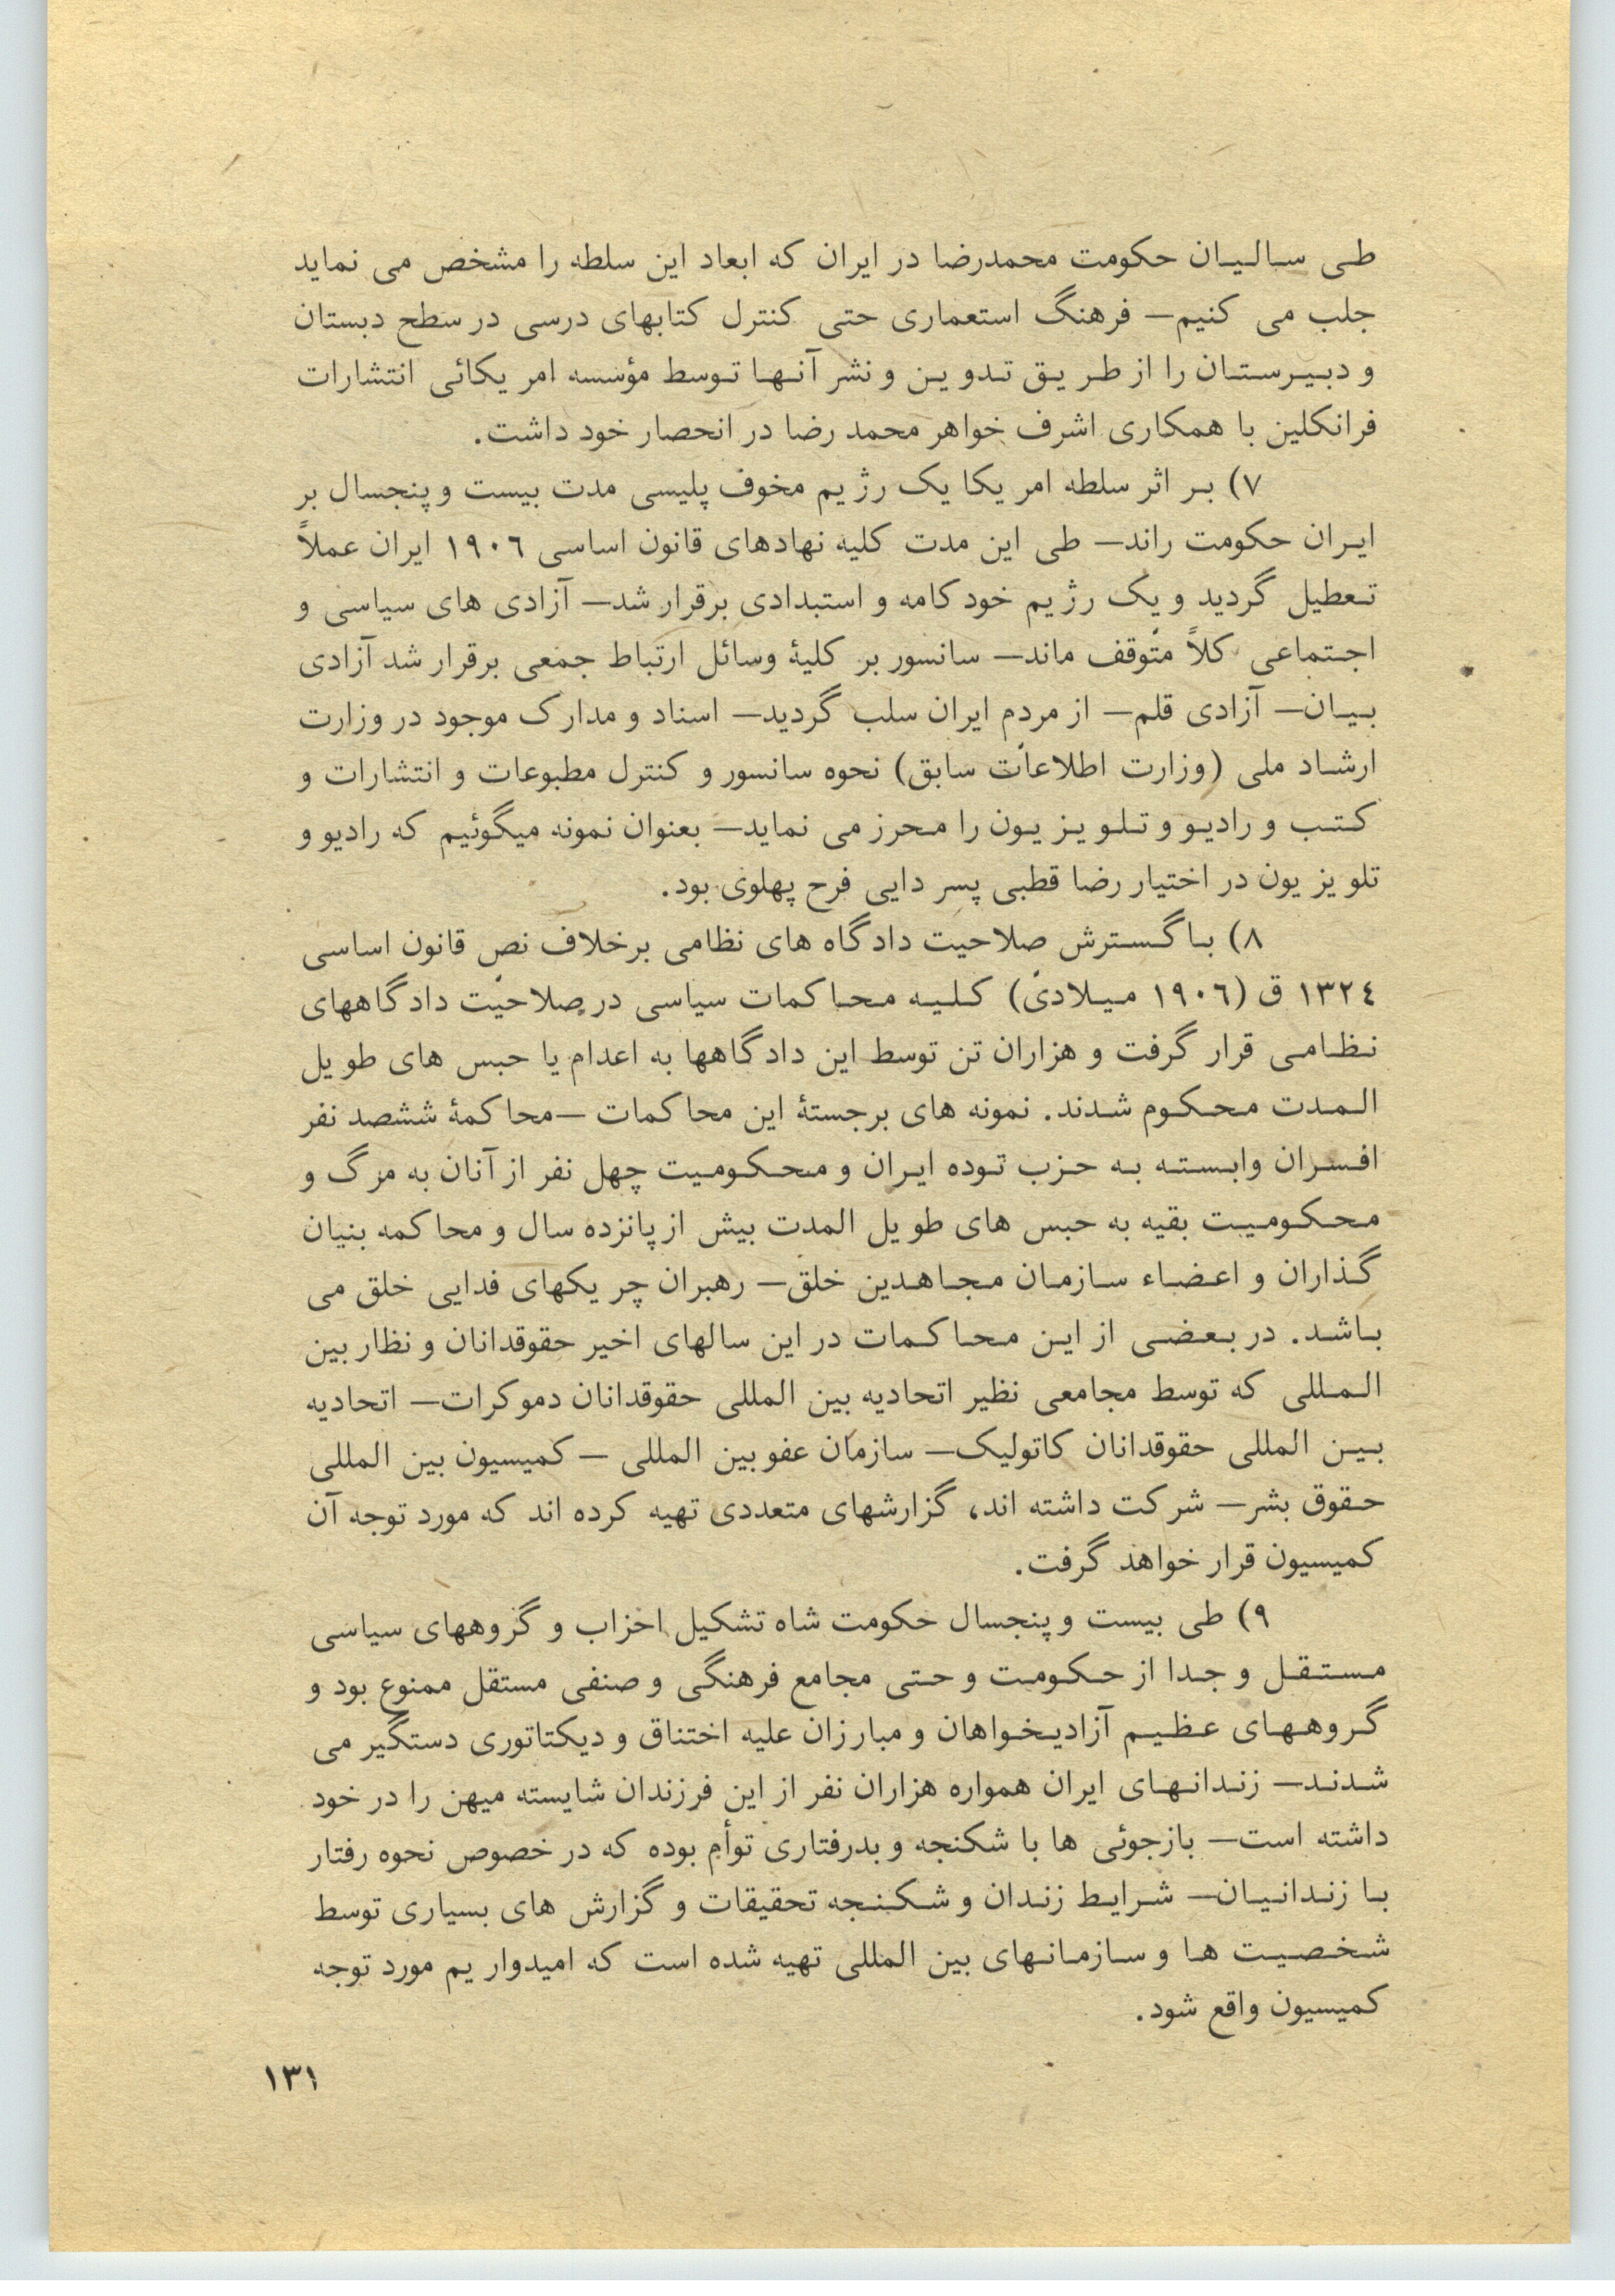 طی سالیان حکومت محمدرضا در ایران که ابعاد این سلطه را مشخص می نماید
جلب می کنیم— فرهنگ استعماری حتی کنترل کتابهای درسی در سطح دبستان
و دبیرستان را از طریق تدوین و نشر آنها توسط مؤسسه امریکائی انتشارات
فرانکلین با همکاری اشرف خواهر محمد رضا در انحصار خود داشت.
۷) بر اثر سلطه امریکا یک رژیم مخوف پلیسی مدت بیست و پنجسال بر
ایران حکومت راند— طی این مدت کلیه نهادهای قانون اساسی ۱۹۰۶ ایران عملاً
تعطیل گردید و یک رژیم خودکامه و استبدادی برقرار شد— آزادی های سیاسی و
اجتماعی کلاً متوقف ماند— سانسور بر کلیهٔ وسائل ارتباط جمعی برقرار شد آزادی
بیان— آزادی قلم— از مردم ایران سلب گردید— اسناد و مدارک موجود در وزارت
ارشاد ملی (وزارت اطلاعات سابق) نحوه سانسور و کنترل مطبوعات و انتشارات و
کتب و رادیو و تلویزیون را محرز می نماید— بعنوان نمونه میگوئیم که رادیو و
تلویزیون در اختیار رضا قطبی پسر دایی فرح پهلوی بود.
۸) با گسترش صلاحیت دادگاه های نظامی برخلاف نص قانون اساسی
۱۳۲٤ ق (۱۹۰۶ میلادی) کلیه محاکمات سیاسی در صلاحیت دادگاههای
نظامی قرار گرفت و هزاران تن توسط این دادگاهها به اعدام یا حبس های طویل
المدت محکوم شدند. نمونه های برجستهٔ این محاکمات —محاکمهٔ ششصد نفر
افسران وابسته به حزب توده ایران و محکومیت چهل نفر از آنان به مرگ و
محکومیت بقیه به حبس های طویل المدت بیش از پانزده سال و محاکمه بنیان
گذاران و اعضاء سازمان مجاهدین خلق— رهبران چریکهای فدایی خلق می
باشد. در بعضی از این محاکمات در این سالهای اخیر حقوقدانان و نظار بین
المللی که توسط مجامعی نظیر اتحادیه بین المللی حقوقدانان دموکرات— اتحادیه
بین المللی حقوقدانان کاتولیک— سازمان عفو بین المللی — کمیسیون بین المللی
حقوق بشر— شرکت داشته اند، گزارشهای متعددی تهیه کرده اند که مورد توجه آن
کمیسیون قرار خواهد گرفت.
۹) طی بیست و پنجسال حکومت شاه تشکیل احزاب و گروههای سیاسی
مستقل و جدا از حکومت و حتی مجامع فرهنگی و صنفی مستقل ممنوع بود و
گروههای عظیم آزادیخواهان و مبارزان علیه اختناق و دیکتاتوری دستگیر می
شدند— زندانهای ایران همواره هزاران نفر از این فرزندان شایسته میهن را در خود
داشته است— بازجوئی ها با شکنجه و بدرفتاری توأم بوده که در خصوص نحوه رفتار
با زندانیان— شرایط زندان و شکنجه تحقیقات و گزارش های بسیاری توسط
شخصیت ها و سازمانهای بین المللی تهیه شده است که امیدواریم مورد توجه
کمیسیون واقع شود.
۱۳۱